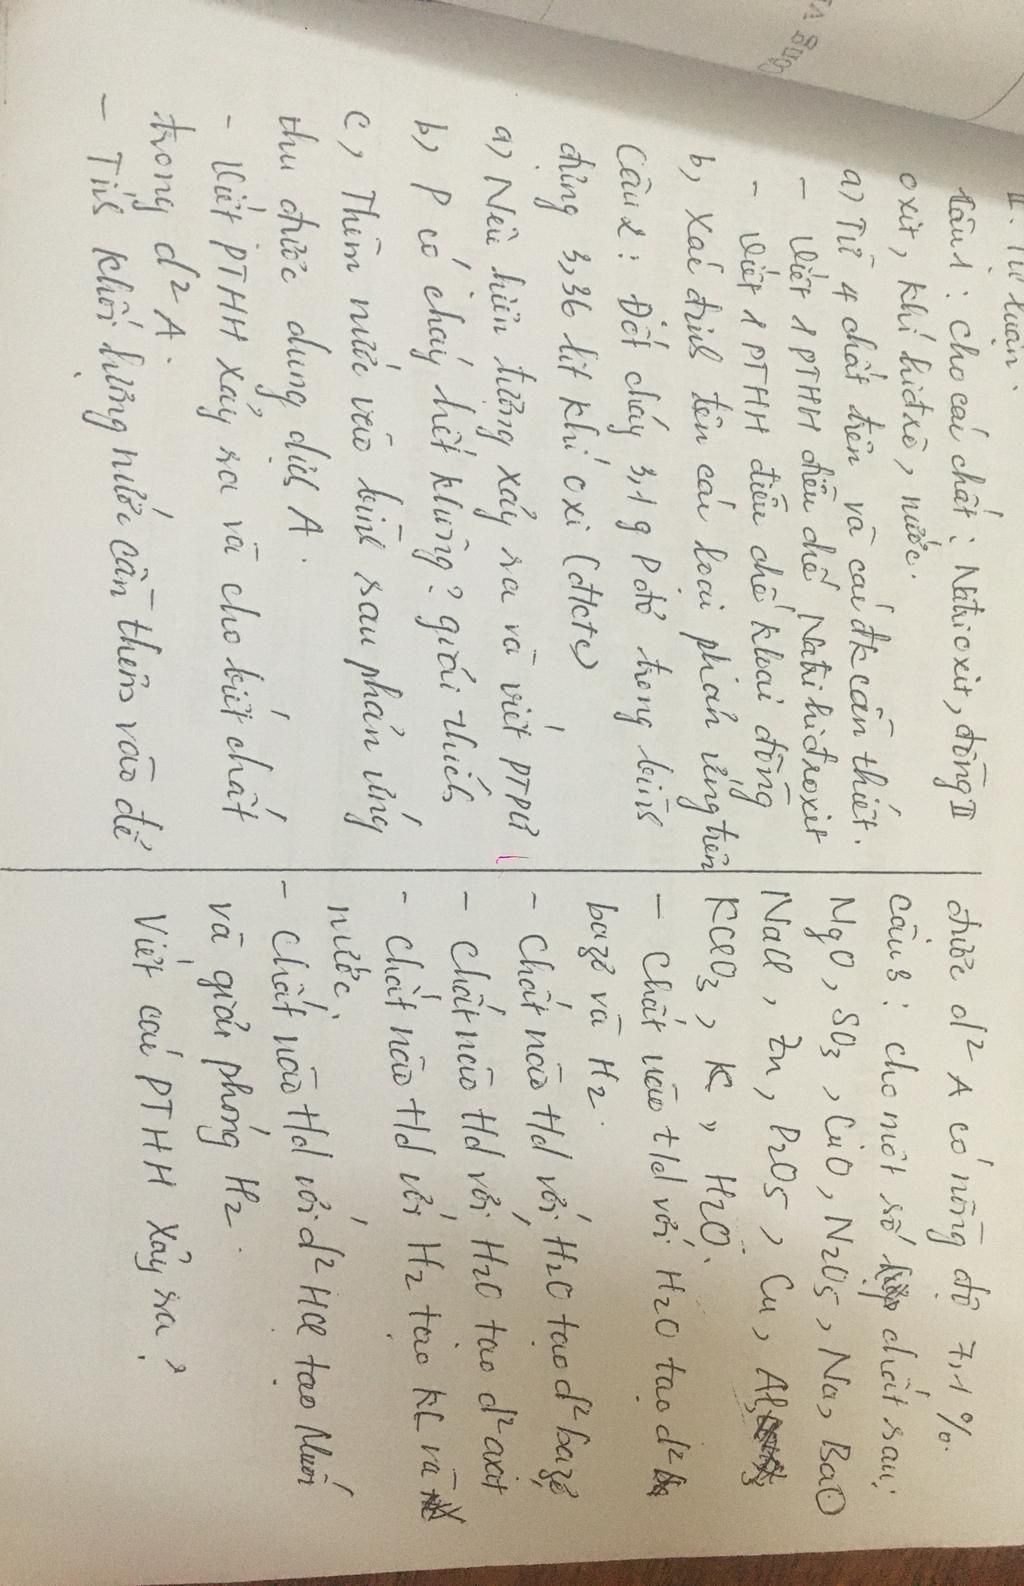 II. Tự luận.
Câu 1: Cho các chất: Natri oxit, đồng II
oxit, khí hiđrô, nước.
a) Từ 4 chất trên và các đk cần thiết.
- Viết 1 PTHH điều chế Natri hiđroxit
- Viết 1 PTHH điều chế kloai đồng
b, Xác định tên các loại phản ứng trên
Câu 2: Đốt cháy 3,1 g P đỏ trong bình
đựng 3,36 lít khí oxi (đktc)
a) Nêu hiện tượng xảy ra và viết PTPƯ
b, P có cháy hết không? giải thích
c, Thêm nước vào bình sau phản ứng
thu được dung dịch A.
- Viết PTHH xảy ra và cho biết chất
trong d² A.
- Tính khối lượng nước cần thêm vào để
được d² A có nồng độ 7,1 %.
Câu 3: cho một số chất sau:
MgO, SO3, CuO, N2O5, Na, BaO
NaCl, Zn, P2O5, Cu, Al,
KClO3, K, H2O.
- Chất nào t/d với H2O tạo d²
bazơ và H2.
- Chất nào t/d với H2O tạo d² bazơ
- Chất nào t/d với H2O tạo d² axit
- Chất nào t/d với H2 tạo KL và
nước.
- Chất nào t/d với d² HCl tạo Muối
và giải phóng H2.
Viết các PTHH xảy ra?
Tà gug